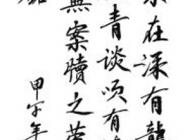 在深有龍
青谈笑有
無案牘之
甲午年